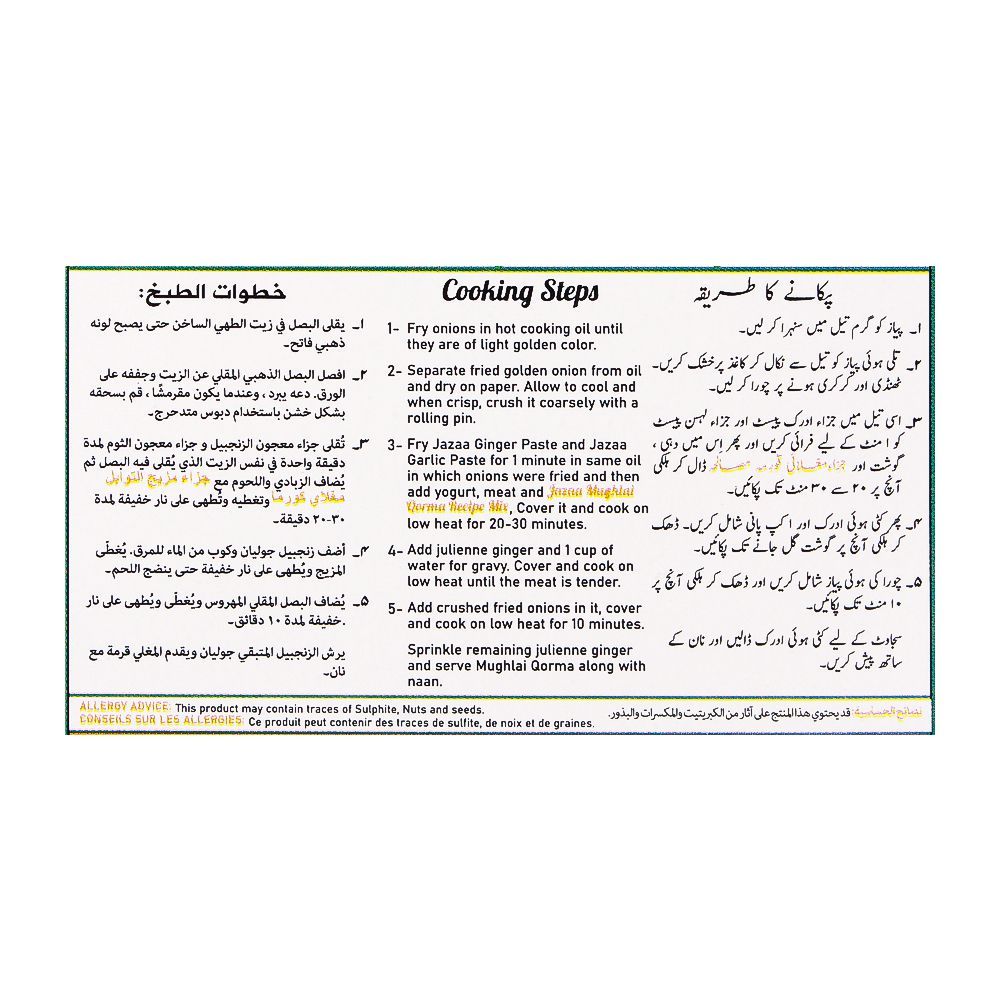 خطوات الطبخ:
١ـ يقلى البصل في زيت الطهي الساخن حتى يصبح لونه
ذهبي فاتح۔
٢ـ افصل البصل الذهبي المقلي عن الزيت وجففه على
الورق. دعه يبرد ، وعندما يكون مقرمشًا ، قم بسحقه
بشكل خشن باستخدام دبوس متدحرج۔
٣ـ تُقلى جزاء معجون الزنجبيل و جزاء معجون الثوم لمدة
دقيقة واحدة في نفس الزيت الذي يُقلى فيه البصل ثم
يُضاف الزبادي واللحوم مع جزاء مزيج التوابل
مغلاي كورما وتغطيه وتُطهى على نار خفيفة لمدة
٢٠-٣٠ دقيقة۔
۴ـ أضف زنجبيل جوليان وكوب من الماء للمرق. يُغطّى
المزيج ويُطهى على نار خفيفة حتى ينضج اللحم۔
۵ـ يُضاف البصل المقلي المهروس ويُغطّى ويُطهى على نار
خفيفة لمدة ١٠ دقائق۔
يرش الزنجبيل المتبقي جوليان ويقدم المغلي قرمة مع
نان۔
Cooking Steps
1- Fry onions in hot cooking oil until
they are of light golden color.
2- Separate fried golden onion from oil
and dry on paper. Allow to cool and
when crisp, crush it coarsely with a
rolling pin.
3- Fry Jazaa Ginger Paste and Jazaa
Garlic Paste for 1 minute in same oil
in which onions were fried and then
add yogurt, meat and Jazaa Mughlai
Qorma Recipe Mix, Cover it and cook on
low heat for 20-30 minutes.
4- Add julienne ginger and 1 cup of
water for gravy. Cover and cook on
low heat until the meat is tender.
5- Add crushed fried onions in it, cover
and cook on low heat for 10 minutes.
Sprinkle remaining julienne ginger
and serve Mughlai Qorma along with
naan.
پکانے کا طریقہ
۱ـ پیاز کو گرم تیل میں سنہرا کر لیں۔
۲ـ تلی ہوئی پیاز کو تیل سے نکال کر کاغذ پر خشک کریں۔
ٹھنڈی اور کرکری ہونے پر چورا کر لیں۔
۳ـ اسی تیل میں جزاء ادرک پیسٹ اور جزاء لہسن پیسٹ
کو ۱ منٹ کے لیے فرائی کریں اور پھر اِس میں دہی ،
گوشت اور جزاء مغلائی قورمہ مصالحہ ڈال کر ہلکی
آنچ پر ۲۰ سے ۳۰ منٹ تک پکائیں۔
۴ـ پھر کٹی ہوئی ادرک اور ۱ کپ پانی شامل کریں۔ ڈھک
کر ہلکی آنچ پر گوشت گل جانے تک پکائیں۔
۵ـ چورا کی ہوئی پیاز شامل کریں اور ڈھک کر ہلکی آنچ پر
۱۰ منٹ تک پکائیں۔
سجاوٹ کے لیے کٹی ہوئی ادرک ڈالیں اور نان کے
ساتھ پیش کریں۔
ALLERGY ADVICE: This product may contain traces of Sulphite, Nuts and seeds.
CONSEILS SUR LES ALLERGIES: Ce produit peut contenir des traces de sulfite, de noix et de graines.
نصائح الحساسية: قد يحتوي هذا المنتج على آثار من الكبريتيت والمكسرات والبذور.